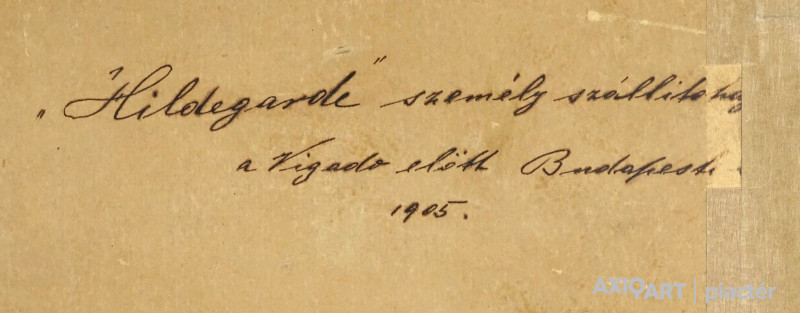 „Hildegarde" személy szállitohaj
a Vigado előtt Budapest
1905.
AXIOART | piactér